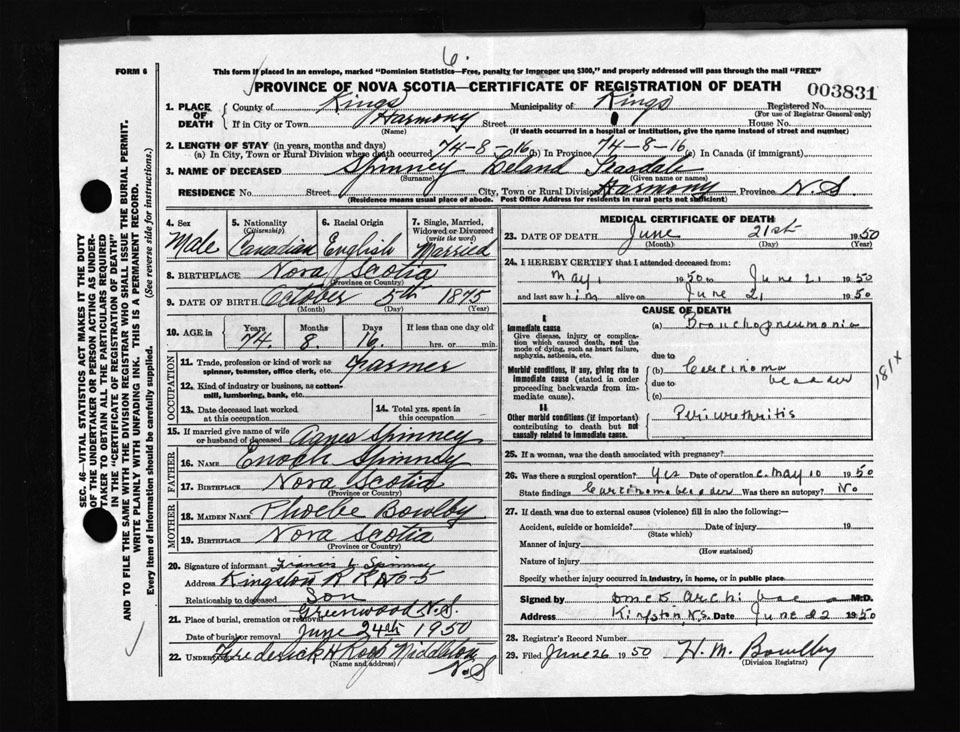 6.
FORM 6
This form if placed in an envelope, marked "Dominion Statistics—Free, penalty for improper use $300," and properly addressed will pass through the mail "FREE"
PROVINCE OF NOVA SCOTIA—CERTIFICATE OF REGISTRATION OF DEATH
003831
1. PLACE OF DEATH County of Kings Municipality of Kings Registered No.
(For use of Registrar General only)
If in City or Town Harmony Street House No.
(Name) (If death occurred in a hospital or institution, give the name instead of street and number)
2. LENGTH OF STAY (in years, months and days)
(a) In City, Town or Rural Division where death occurred 74-8-16 (b) In Province 74-8-16 (c) In Canada (if immigrant)
3. NAME OF DECEASED Spinney Leland Teasdale
(Surname) (Given name or names)
RESIDENCE No. Street City, Town or Rural Division Harmony Province N.S
(Residence means usual place of abode. Post Office Address for residents in rural parts not sufficient)
4. Sex Male
5. Nationality (Citizenship) Canadian
6. Racial Origin English
7. Single, Married, Widowed or Divorced (write the word) Married
8. BIRTHPLACE Nova Scotia
(Province or Country)
9. DATE OF BIRTH October 5th 1875
(Month) (Day) (Year)
10. AGE in Years Months Days If less than one day old
74. 8. 16. hrs. or min.
OCCUPATION
11. Trade, profession or kind of work as spinner, teamster, office clerk, etc. Farmer
12. Kind of industry or business, as cotton-mill, lumbering, bank, etc.
13. Date deceased last worked at this occupation
14. Total yrs. spent in this occupation
15. If married give name of wife or husband of deceased Agnes Spinney
FATHER
16. Name Enoch Spinney
17. Birthplace Nova Scotia
(Province or Country)
MOTHER
18. Maiden Name Phoebe Bowlby
19. Birthplace Nova Scotia
(Province or Country)
20. Signature of informant Francis L Spinney
Address Kingston R R No-5
Relationship to deceased Son
21. Place of burial, cremation or removal Greenwood N.S.
Date of burial or removal June 24th 1950
22. Undertaker Frederick A Roop Middleton N.S
(Name and address)
MEDICAL CERTIFICATE OF DEATH
23. DATE OF DEATH June 21st 1950
(Month) (Day) (Year)
24. I HEREBY CERTIFY that I attended deceased from:
May 1 1950 to June 21 1950
and last saw him alive on June 21 1950
CAUSE OF DEATH
I
Immediate cause
Give disease, injury or complication which caused death, not the mode of dying, such as heart failure, asphyxia, asthenia, etc.
(a) Bronchopneumonia
due to
Morbid conditions, if any, giving rise to immediate cause (stated in order proceeding backwards from immediate cause).
(b) Carcinoma
due to bladder
(c)
181X
II
Other morbid conditions (if important) contributing to death but not causally related to immediate cause.
Periurethritis
25. If a woman, was the death associated with pregnancy?
26. Was there a surgical operation? Yes Date of operation c. May 10 1950
State findings Carcinoma bladder Was there an autopsy? No
27. If death was due to external causes (violence) fill in also the following:—
Accident, suicide or homicide? Date of injury 19
(State which)
Manner of injury
(How sustained)
Nature of injury
Specify whether injury occurred in industry, in home, or in public place.
Signed by M.D.
Address Kingston N.S. Date June 22 1950
28. Registrar's Record Number
29. Filed June 26 1950 H. M. Bowlby
(Division Registrar)
SEC. 46—VITAL STATISTICS ACT MAKES IT THE DUTY
OF THE UNDERTAKER OR PERSON ACTING AS UNDER-
TAKER TO OBTAIN ALL THE PARTICULARS REQUIRED
IN THE "CERTIFICATE OF REGISTRATION OF DEATH"
AND TO FILE THE SAME WITH THE DIVISION REGISTRAR WHO SHALL ISSUE THE BURIAL PERMIT.
WRITE PLAINLY WITH UNFADING INK. THIS IS A PERMANENT RECORD.
Every item of information should be carefully supplied. (See reverse side for instructions.)